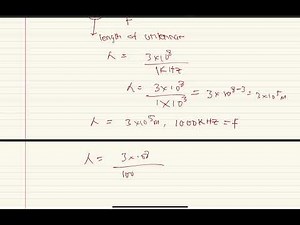 length of antenna
λ = 3×10⁸ / 1KHz
λ = 3×10⁸ / 1×10³ = 3×10⁸⁻³ = 3×10⁵m
λ = 3×10⁵m, 1000KHz = f
λ = 3×10⁸ / 100